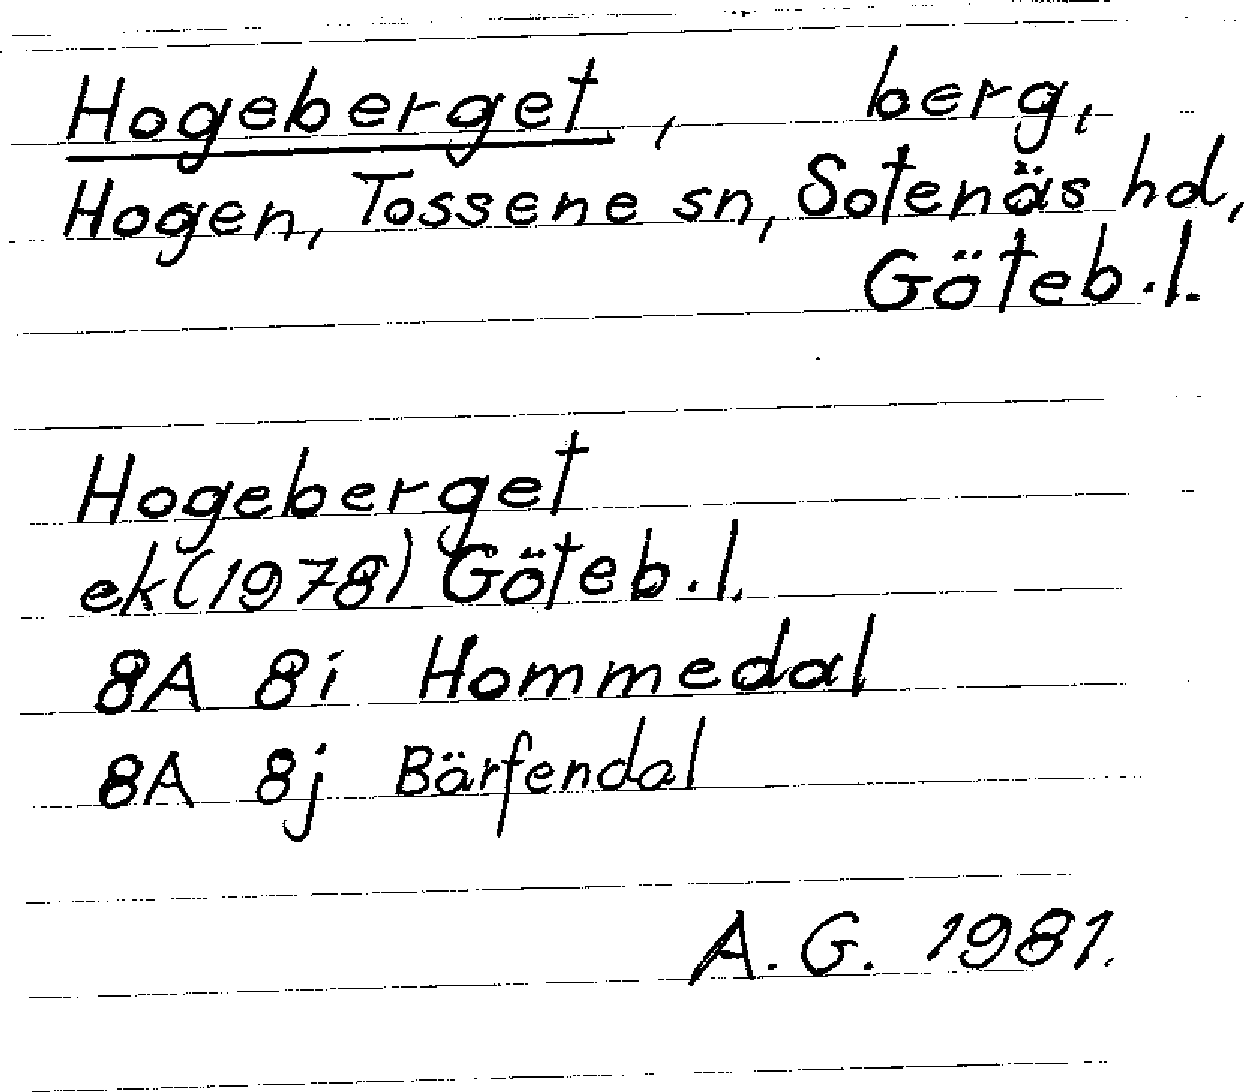 Hogeberget, berg,
Hogen, Tossene sn, Sotenäs hd,
Göteb.l.
Hogeberget
ek(1978) Göteb.l.
8A 8i Hommedal
8A 8j Bärfendal
A.G. 1981.